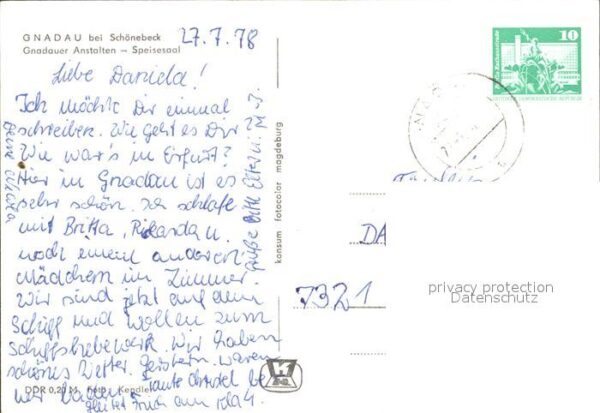 GNADAU bei Schönebeck
Gnadauer Anstalten – Speisesaal
27.7.78
Liebe Daniela!
Ich möchte Dir einmal
schreiben. Wie geht es Dir
Wie war's in Erfurt?
Hier in Gnadau ist es
sehr schön. Ich schlafe
mit Britta, Ricarda u.
noch einem anderen
Mädchen im Zimmer.
Wir sind jetzt auf dem
Schiff und wollen zum
Schiffshebewerk. Wir haben
schönes Wetter. Gestern waren
wir baden. Tante Christel be
gleitet Euch am
Grüße bitte Eltern u.
Deine
DDR 0,20 M Foto: Kendler
konsum fotocolor magdeburg
10
DA
7321
privacy protection
Datenschutz